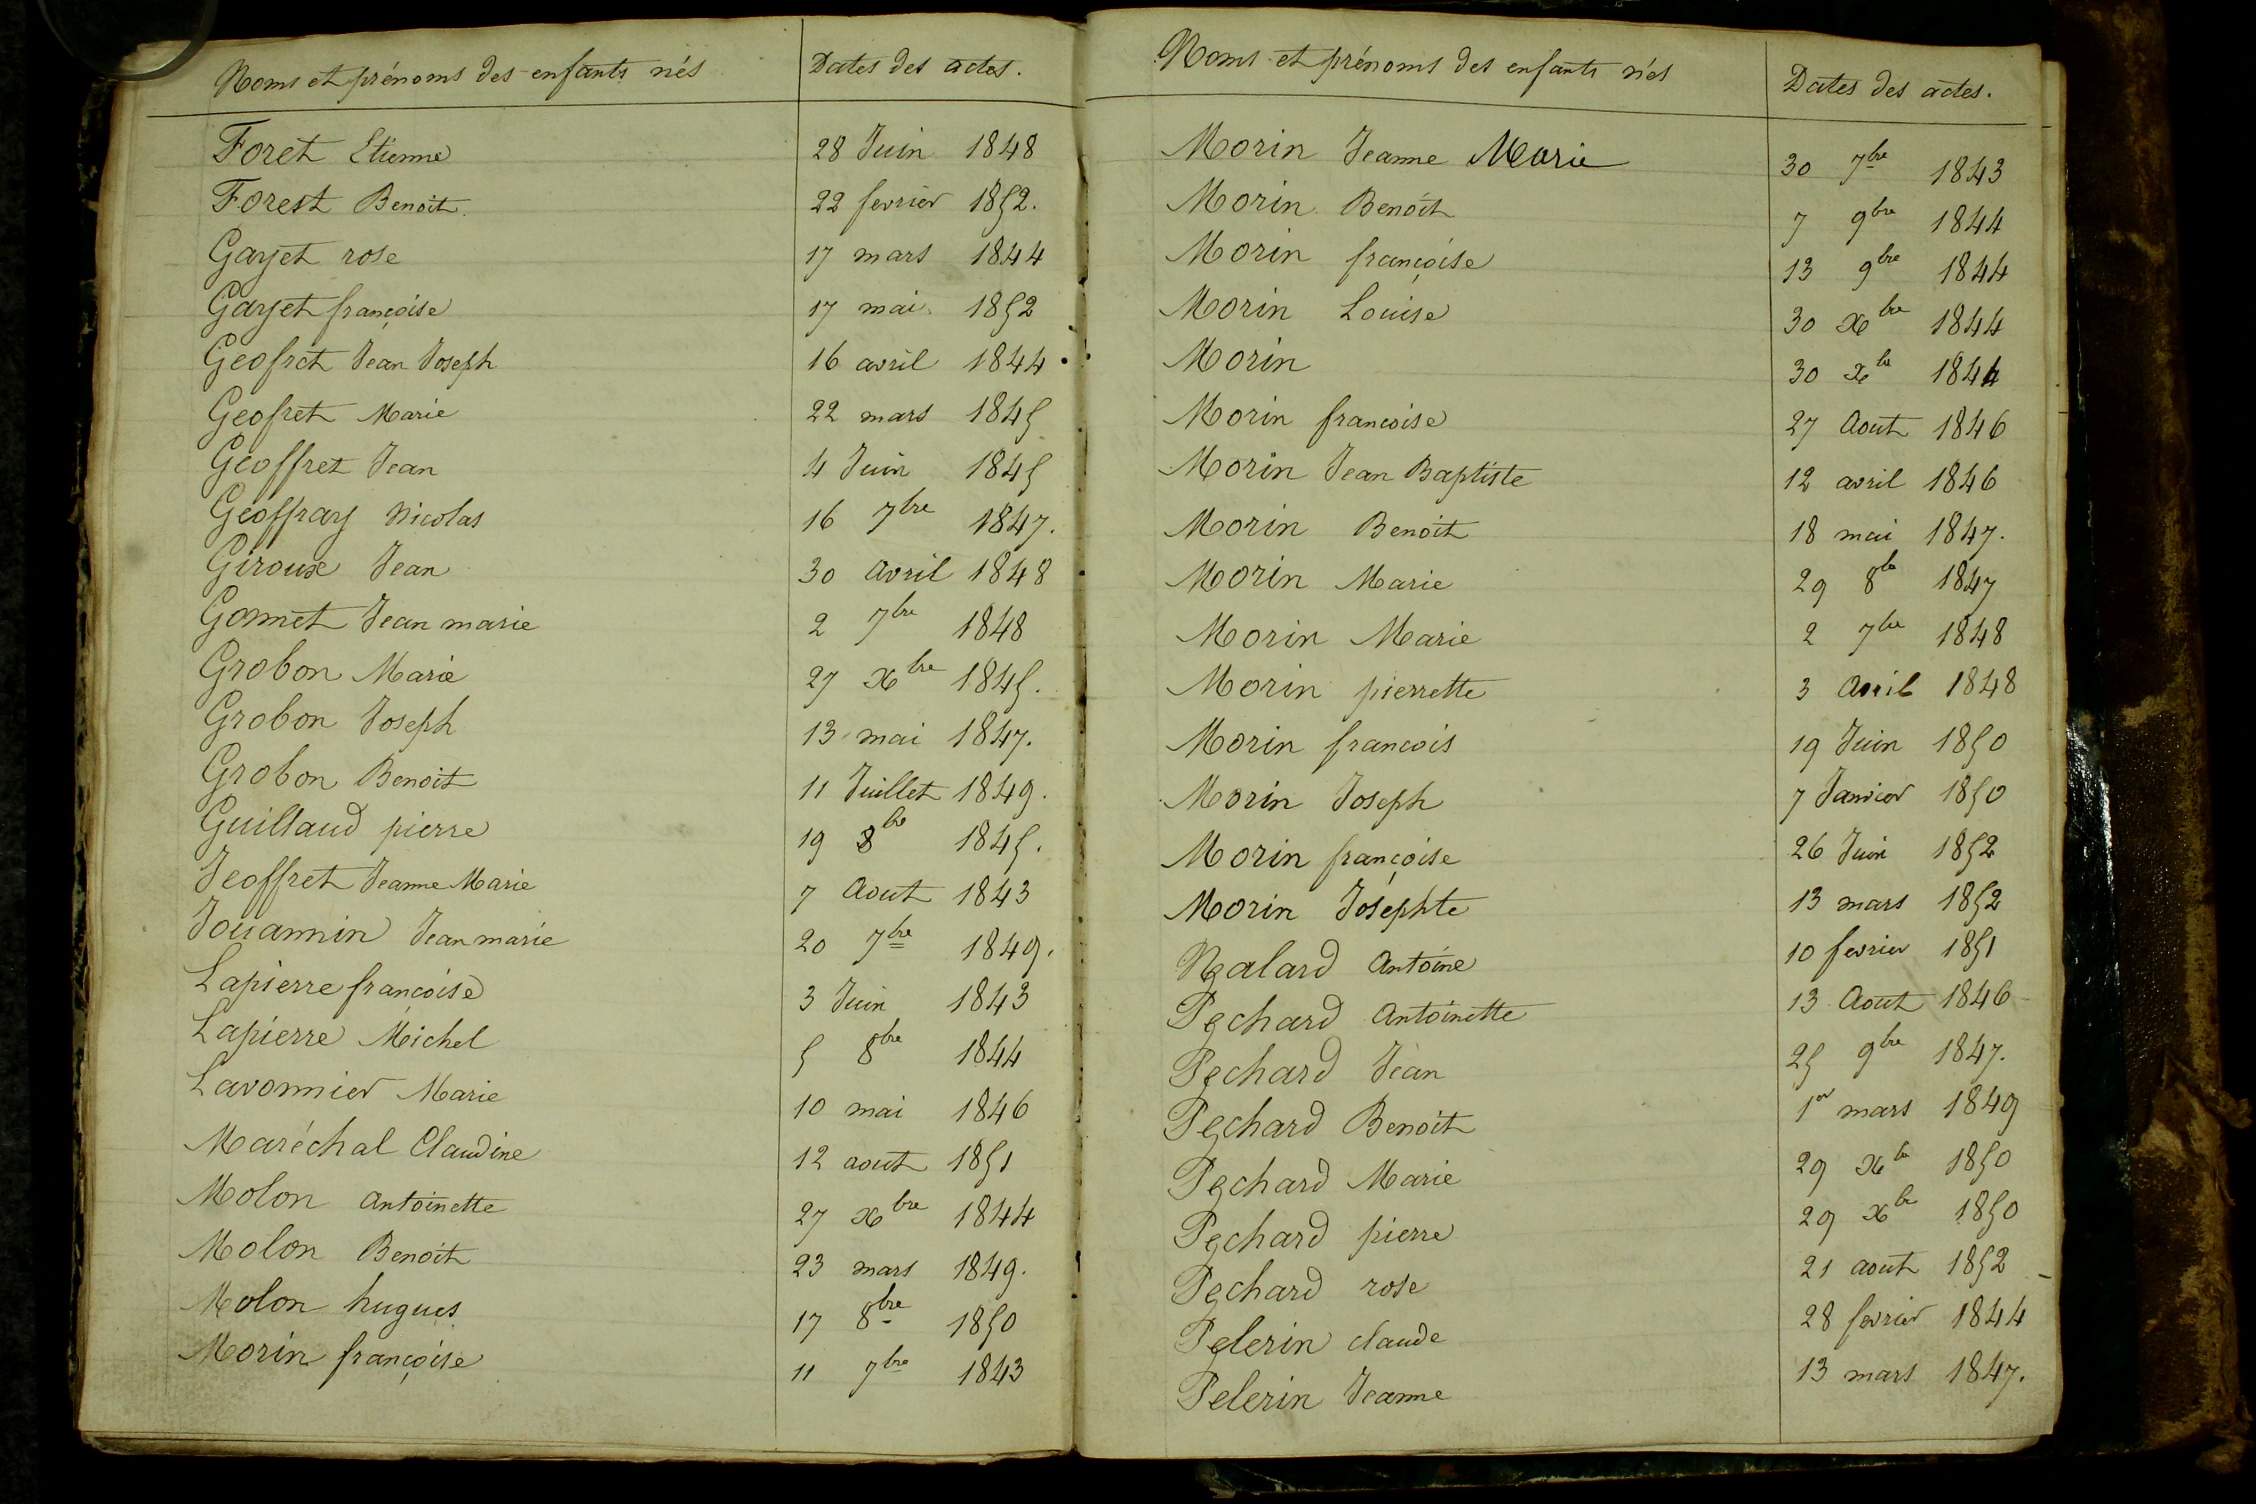 Noms et prénoms des enfants nés Dates des actes.
Foret Etienne 28 Juin 1848
Forest Benoit 22 fevrier 1852.
Gayet rose 17 mars 1844
Gayet françoise 17 mai 1852
Geofret Jean Joseph 16 avril 1844
Geofret Marie 22 mars 1845
Geoffret Jean 4 Juin 1845
Geoffray Nicolas 16 7bre 1847.
Giroux Jean 30 avril 1848
Gonnet Jean marie 2 7bre 1848
Grobon Marie 27 Xbre 1845.
Grobon Joseph 13 mai 1847.
Grobon Benoit 11 Juillet 1849.
Guillaud pierre 19 8bre 1845.
Jeoffret Jeanne Marie 7 Aout 1843
Jouannin Jean marie 20 7bre 1849.
Lapierre francoise 3 Juin 1843
Lapierre Michel 5 8bre 1844
Lavonnier Marie 10 mai 1846
Maréchal Claudine 12 aout 1851
Molon antoinette 27 Xbre 1844
Molon Benoit 23 mars 1849.
Molon hugues 17 8bre 1850
Morin françoise 11 7bre 1843
Noms et prénoms des enfants nés Dates des actes.
Morin Jeanne Marie 30 7bre 1843
Morin Benoit 7 9bre 1844
Morin françoise 13 9bre 1844
Morin Louise 30 Xbre 1844
Morin 30 Xbre 1844
Morin francoise 27 Aout 1846
Morin Jean Baptiste 12 avril 1846
Morin Benoit 18 mai 1847.
Morin Marie 29 8bre 1847
Morin Marie 2 7bre 1848
Morin pierrette 3 Avril 1848
Morin francois 19 Juin 1850
Morin Joseph 7 Janvier 1850
Morin françoise 26 Juin 1852
Morin Josephte 13 mars 1852
Nalard Antoine 10 fevrier 1851
Pechard Antoinette 13 Aout 1846
Pechard Jean 25 9bre 1847.
Pechard Benoit 1er mars 1849
Pechard Marie 29 Xbre 1850
Pechard pierre 29 Xbre 1850
Pechard rose 21 aout 1852
Pelerin claude 28 fevrier 1844
Pelerin Jeanne 13 mars 1847.